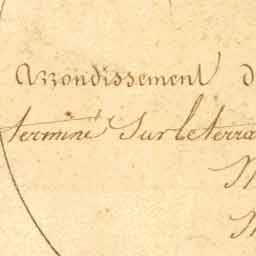 Arrondissement d
terminé sur le terra
M
M